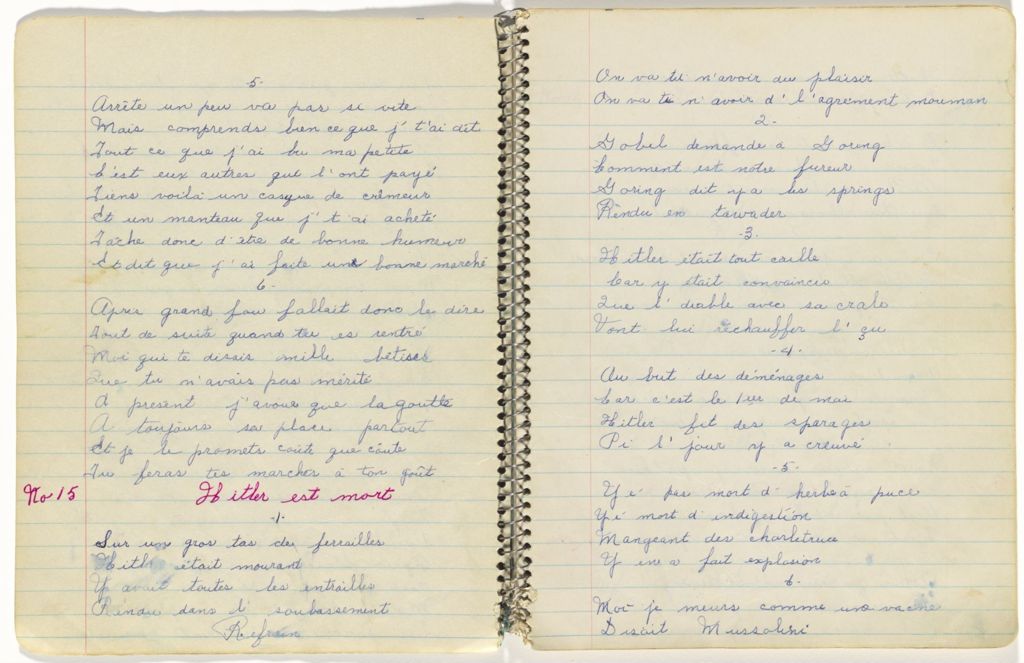 -5-
Arrête un peu va pas si vite
Mais comprends bien ce que j't'ai dit
Tout ce que j'ai bu ma petite
C'est eux autres qui l'ont payé
Tiens voilà un casque de crémeur
Et un manteau que j't'ai acheté
Tâche donc d'être de bonne humeur
Et dit que j'ai faite une bonne marché
6-
Apres grand fou fallait donc le dire
Tout de suite quand tu es rentré
Moi qui te disais mille bêtises
Que tu n'avais pas mérité
A present j'avoue que la goutte
A toujours sa place partout
Et je te promets coûte que coûte
Tu feras tes marchés à ton goût
No 15 Hitler est mort
-1-
Sur un gros tas de ferrailles
Hitler était mourant
Y avait toutes les entrailles
Rendu dans l'soubassement
Refrain
On va tu n'avoir du plaisir
On va tu n'avoir d'l'agrement mouman
2-
Gobel demande à Goring
Comment est notre fureur
Goring dit y a les springs
Rendu en tawader
-3-
Hitler était tout caille
Car y était convaincu
Que l'diable avec sa crale
Vont lui réchauffer l'çu
-4-
Au but des déménages
Car c'est le 1er de mai
Hitler fit des sparages
Pi l'jour y a creuvé
-5-
Y é pas mort d'herbe à puce
Y é mort d'indigestion
Mangeant des charletruce
Y en a fait explosion
6-
Moé je meurs comme une vache
Disait Mussolini